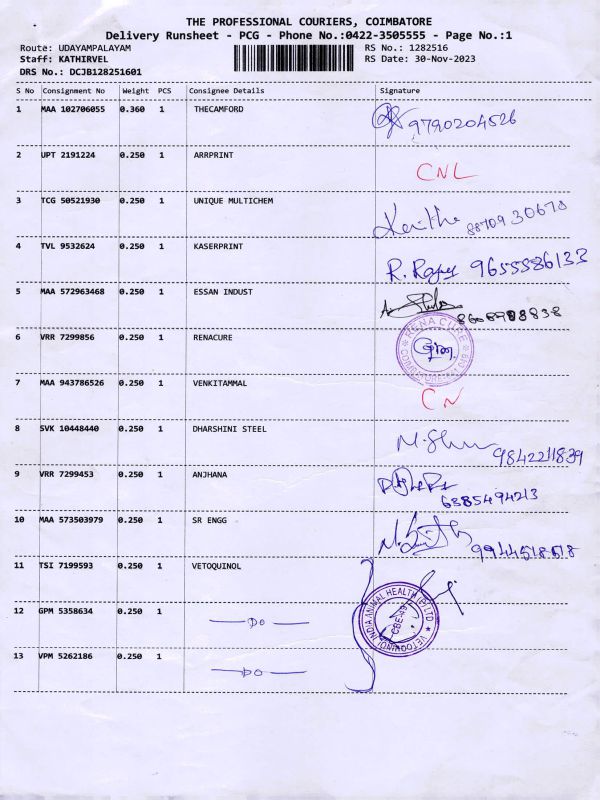 THE PROFESSIONAL COURIERS, COIMBATORE
Delivery Runsheet - PCG - Phone No.:0422-3505555 - Page No.:1
Route: UDAYAMPALAYAM RS No.: 1282516
Staff: KATHIRVEL RS Date: 30-Nov-2023
DRS No.: DCJB128251601
S No Consignment No Weight PCS Consignee Details Signature
1 MAA 102706055 0.360 1 THECAMFORD 9790204526
2 UPT 2191224 0.250 1 ARRPRINT CNL
3 TCG 50521930 0.250 1 UNIQUE MULTICHEM 8870930678
4 TVL 9532624 0.250 1 KASERPRINT R. 9655586133
5 MAA 572963468 0.250 1 ESSAN INDUST
6 VRR 7299856 0.250 1 RENACURE RENA CURE
7 MAA 943786526 0.250 1 VENKITAMMAL CN
8 SVK 10448440 0.250 1 DHARSHINI STEEL 9842211839
9 VRR 7299453 0.250 1 ANJHANA 6385494213
10 MAA 573503979 0.250 1 SR ENGG 9944518618
11 TSI 7199593 0.250 1 VETOQUINOL
12 GPM 5358634 0.250 1 — DO — VETOQUINOL INDIA ANIMAL HEALTH (P) LTD CBE-43
13 VPM 5262186 0.250 1 — DO —